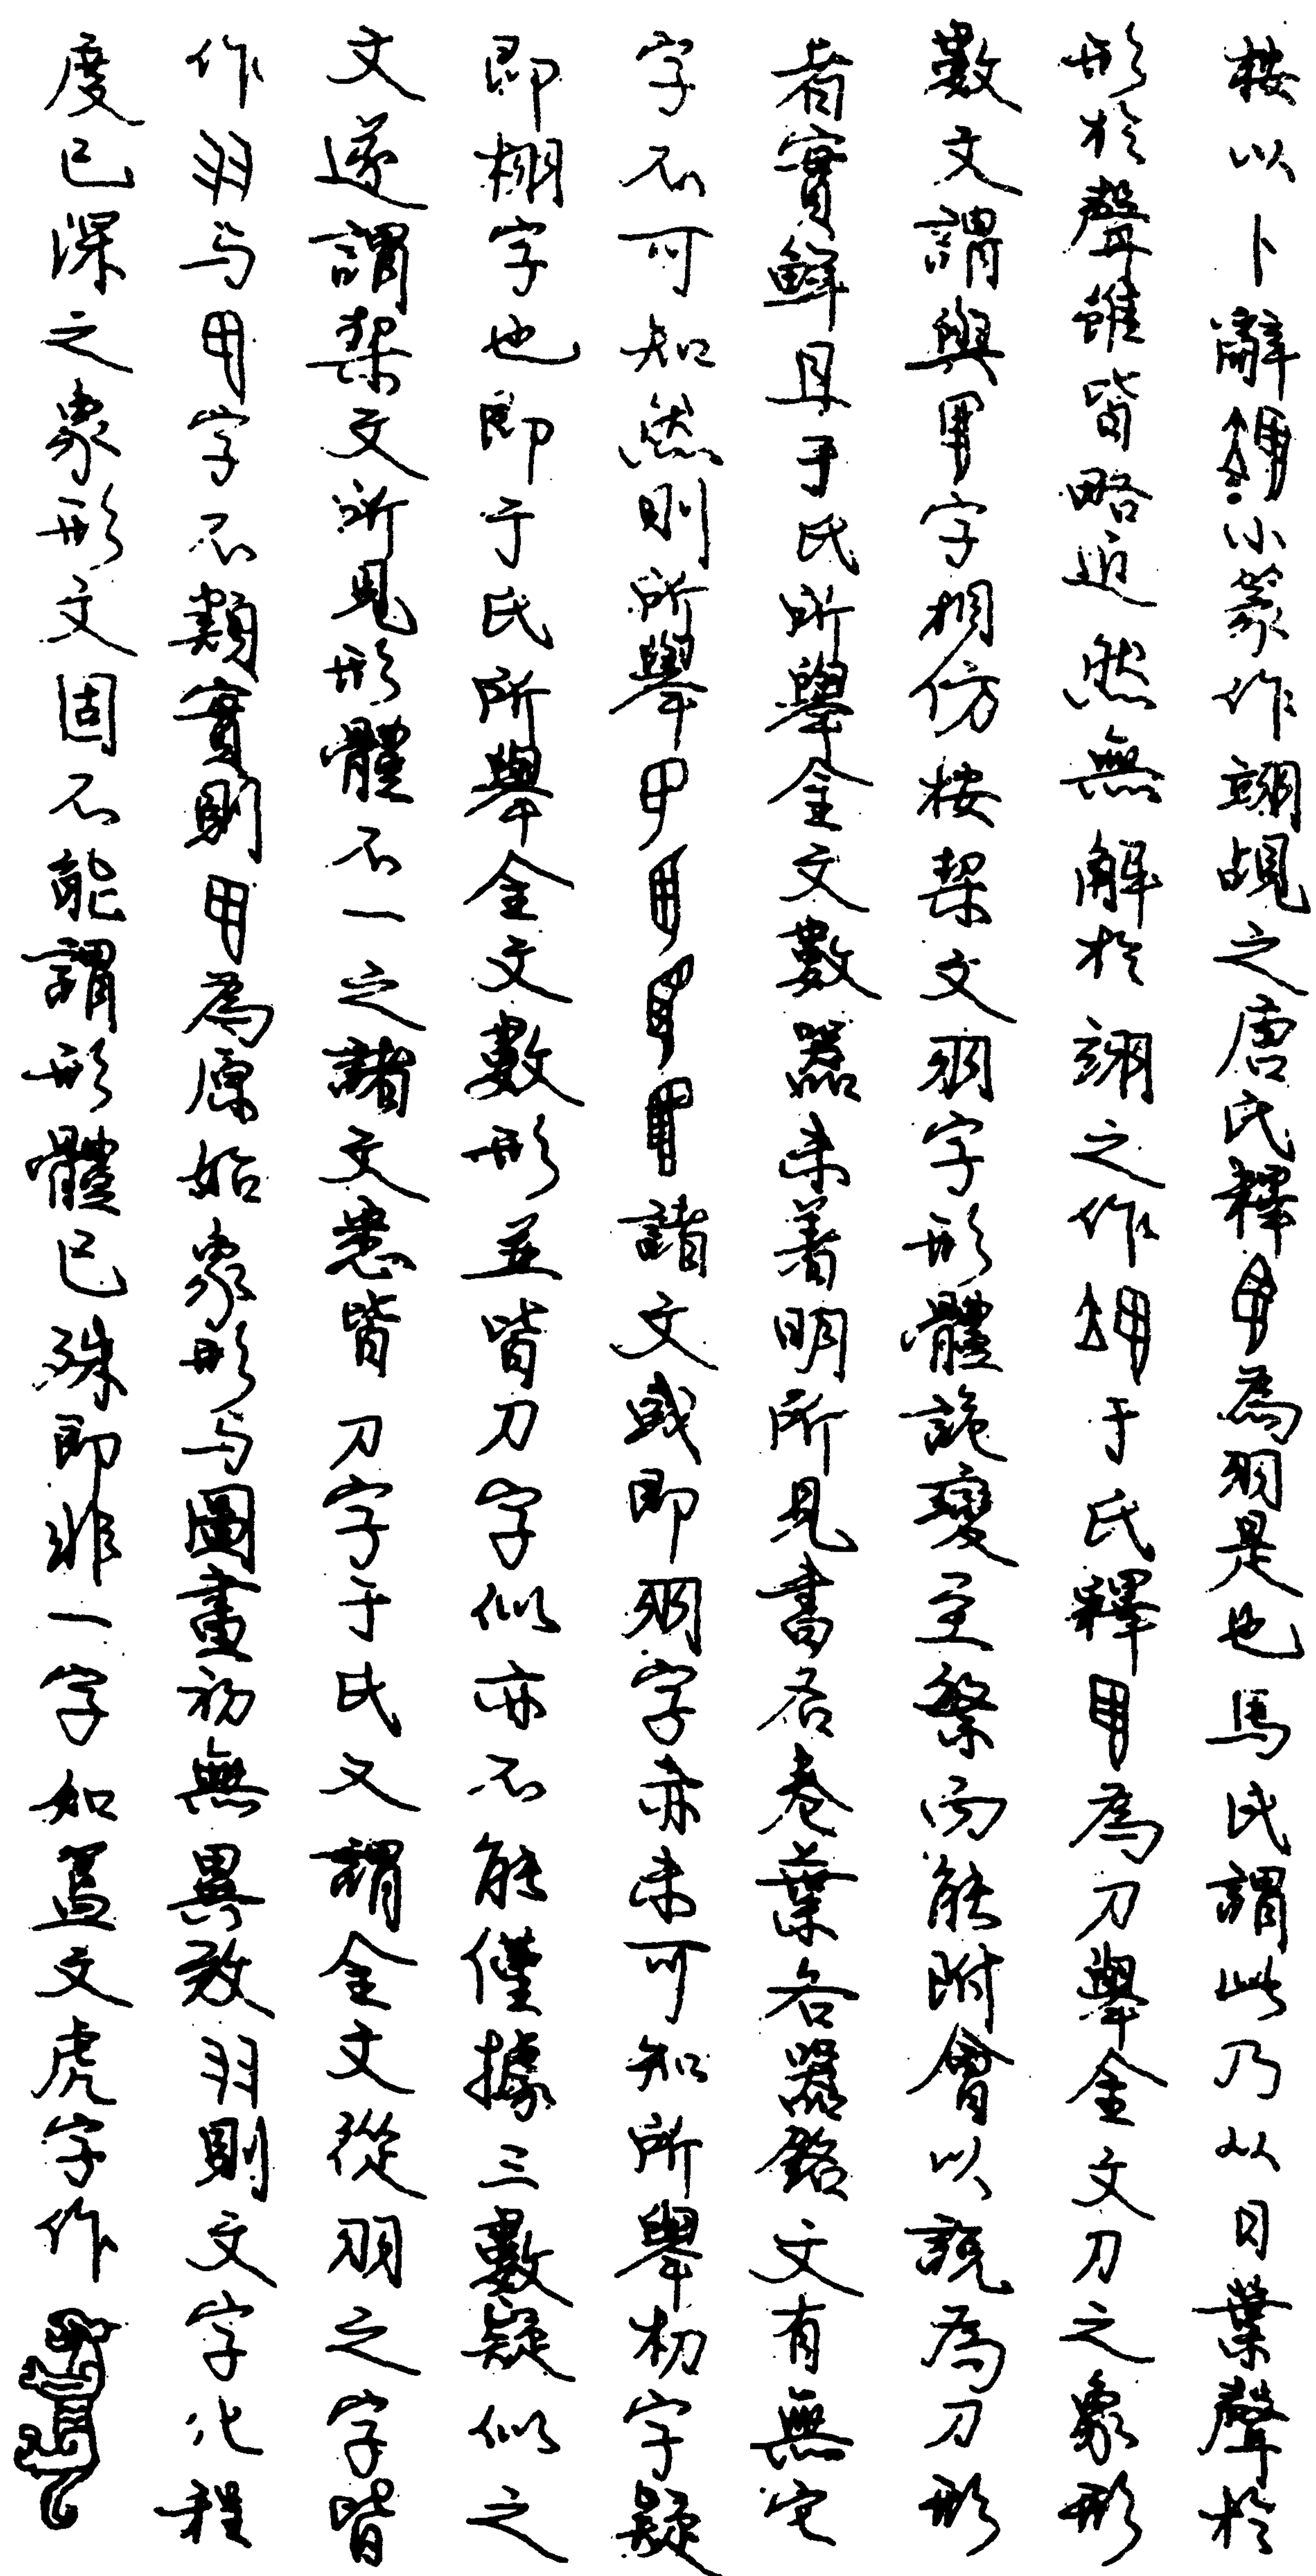 按以卜辭小篆作翊覘之唐氏釋為羽是也馬氏謂此乃从日葉聲於
形於聲雖皆略近然無解於翊之作于氏釋為刀舉金文刀之象形
數文謂與字相仿按栔文羽字形體詭變至繁而能附會以說為刀形
者實鮮且于氏所舉金文數器未著明所見書名卷葉各器銘文有無它
字不可知然則所舉諸文或即羽字亦未可知所舉朷字疑
即栩字也即于氏所舉金文數形並皆刀字似亦不能僅據三數疑似之
文遂謂栔文所見形體不一之諸文悉皆刀字于氏又謂金文從羽之字皆
作羽与字不類實則為原始象形与圖畫初無異致羽則文字化程
度已深之象形文固不能謂形體已殊即非一字如盂文虎字作